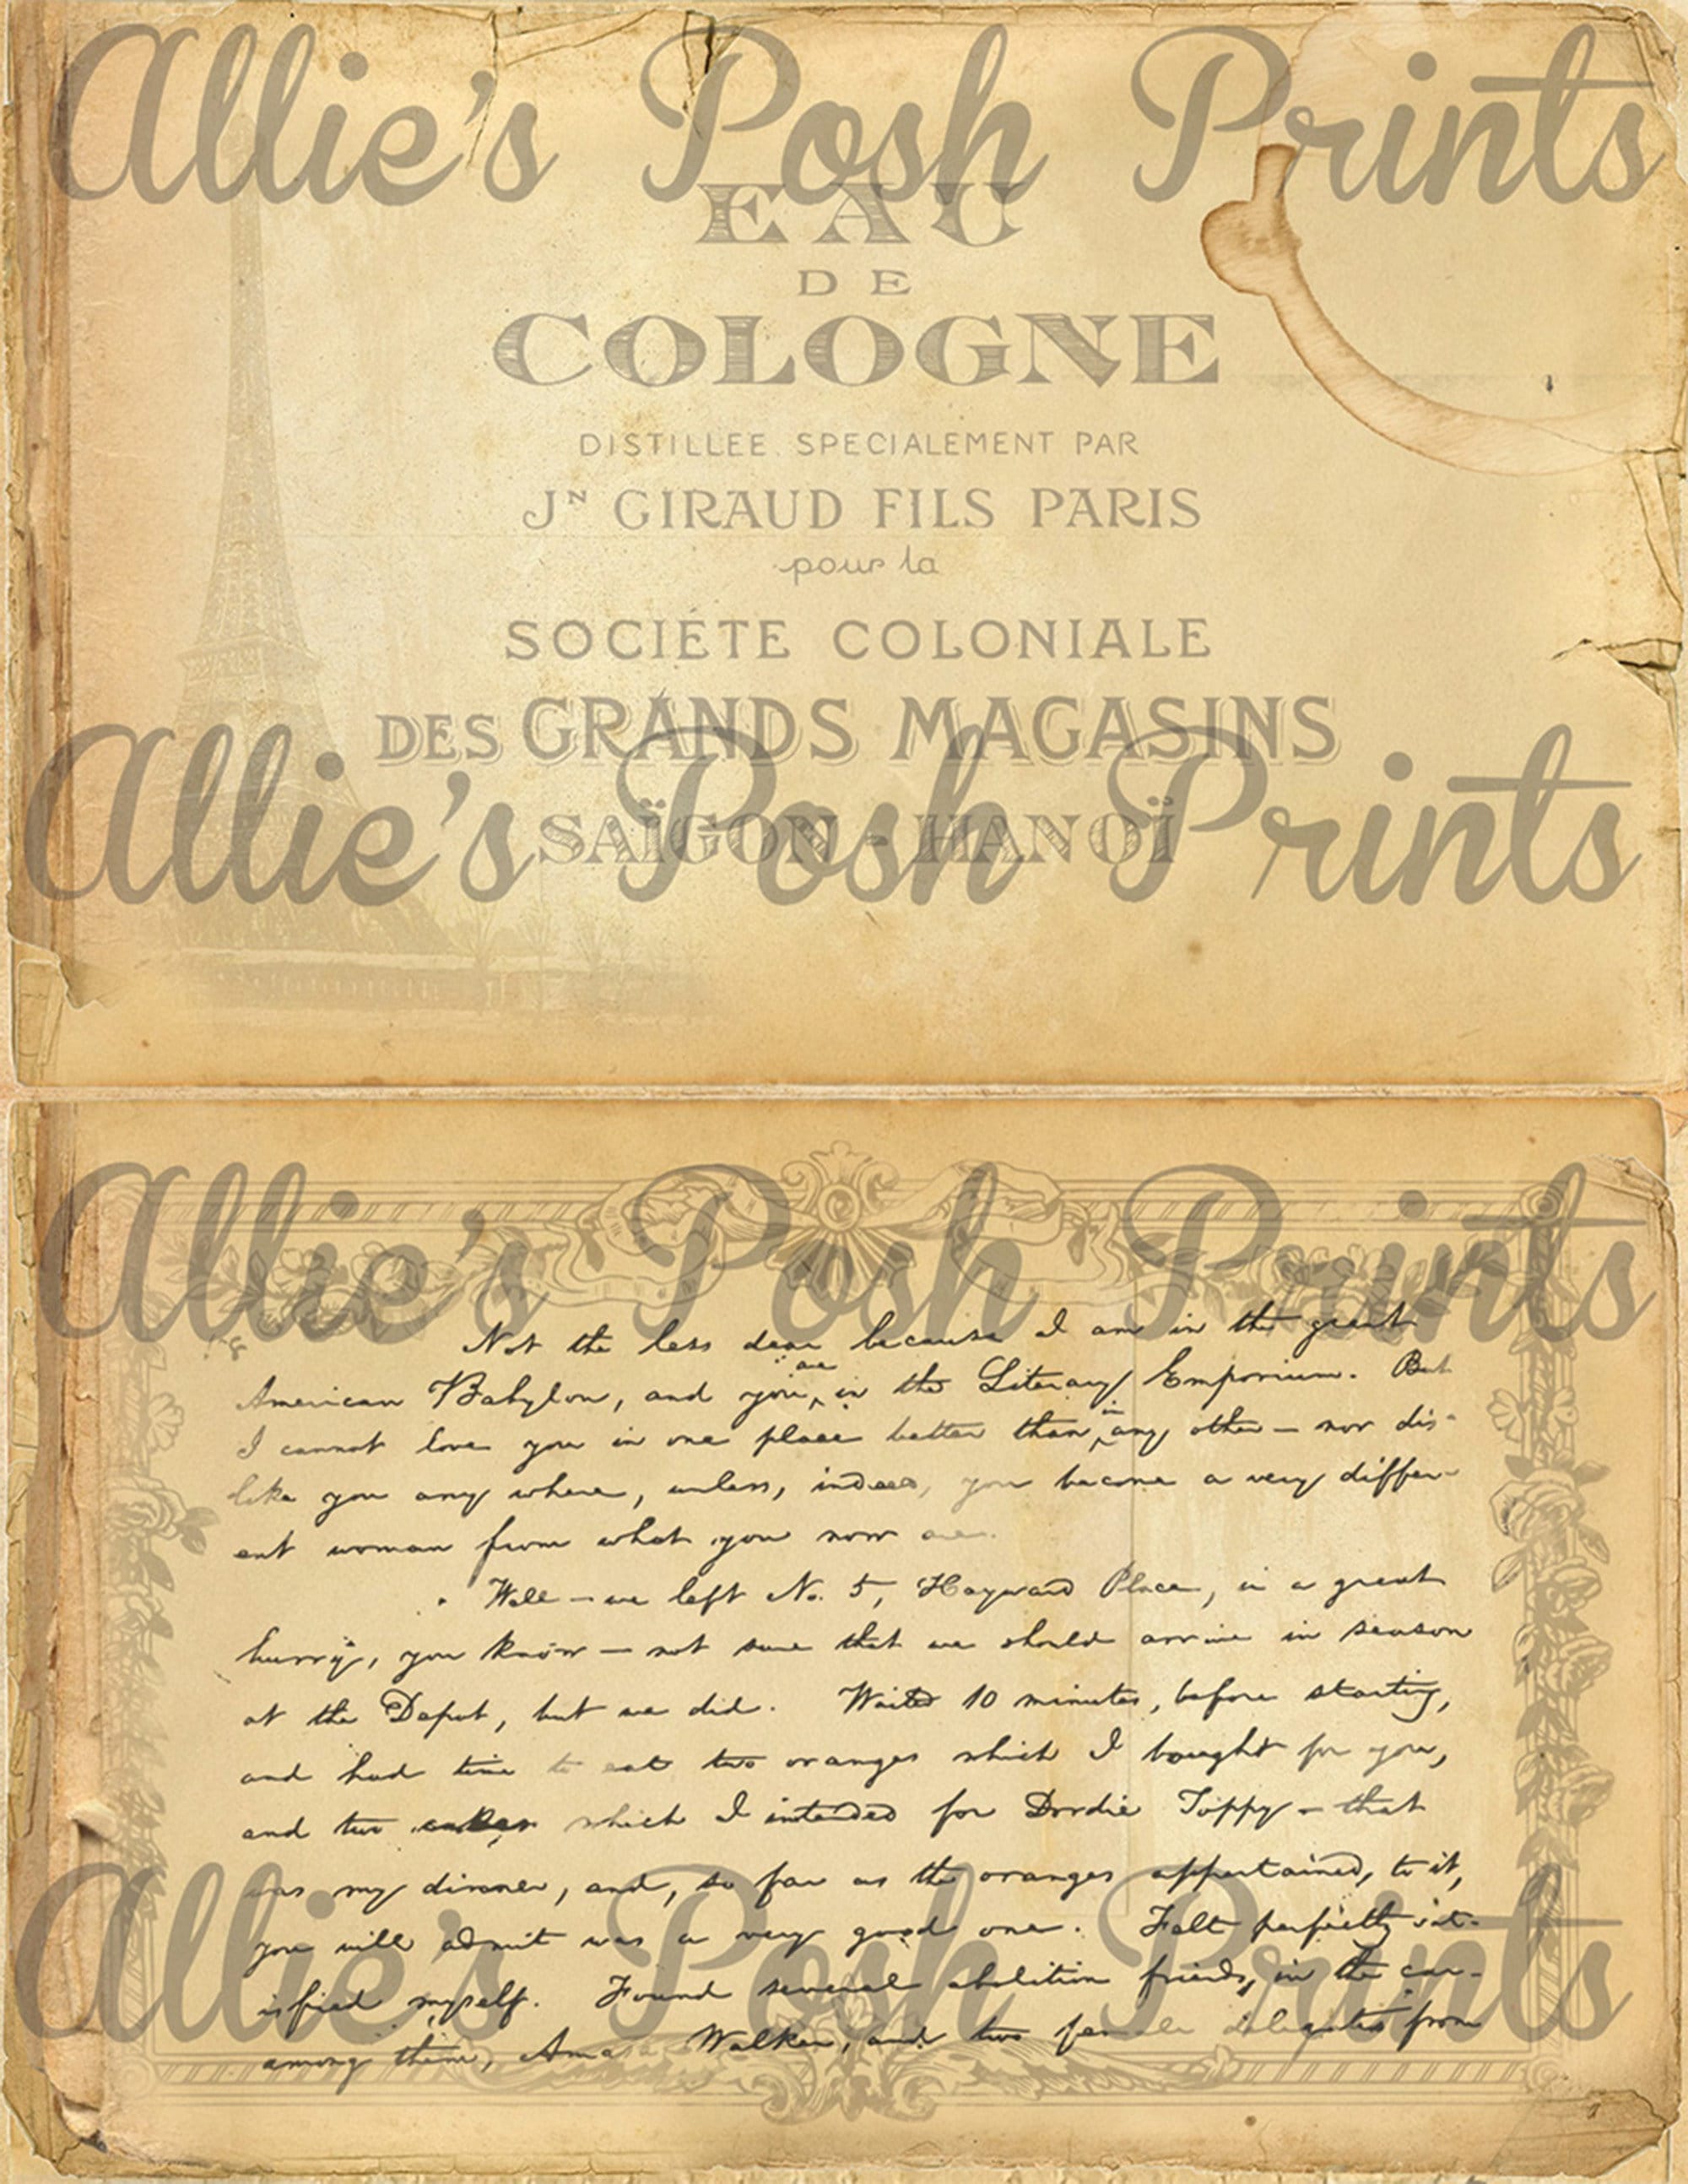 Allie's Posh Prints
EAU
DE
COLOGNE
DISTILLEE SPECIALEMENT PAR
JN GIRAUD FILS PARIS
pour la
SOCIÉTE COLONIALE
DES GRANDS MAGASINS
Allie's Posh Prints
SAÏGON - HANOÏ
Allie's Posh Prints
Not the less dear because I am in the great
American Babylon, and you are in the Literary Emporium. But
I cannot love you in one place better than in any other — nor dis-
like you any where, unless, indeed, you become a very differ-
ent woman from what you now are.
Well — we left No. 5, Hayward Place, in a great
hurry, you know — not sure that we should arrive in season
at the Depot, but we did. Waited 10 minutes, before starting,
and had time to eat two oranges which I bought for you,
and two cakes which I intended for Dordie Toppy — that
was my dinner, and, so far as the oranges appertained, to it,
you will admit was a very good one. Felt perfectly sat-
isfied myself. Found several abolition friends, in the car-
among them, Amasa Walker, and two female delegates from
Allie's Posh Prints